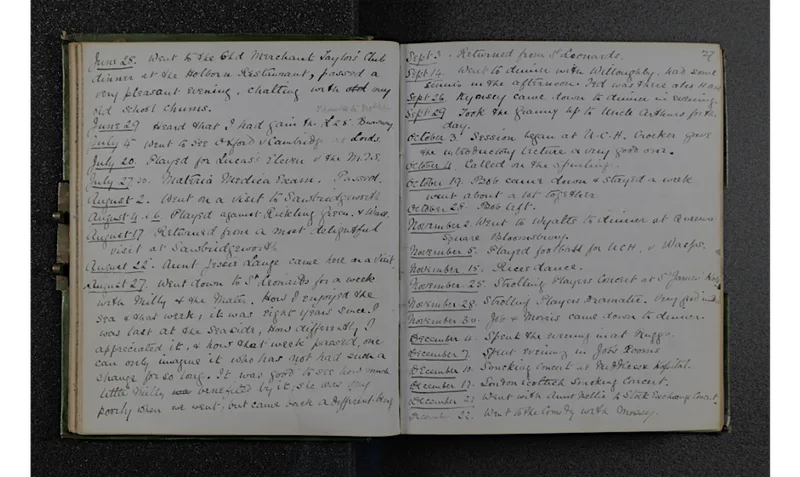 June 28. Went to the Old Merchant Taylor's Club
dinner at the Holborn Restaurant, passed a
very pleasant evening, chatting with my
old school chums.
June 29 Heard that I had gain the £25 Bursary
July 4 Went to see Oxford v Cambridge at Lords.
July 20. Played for Lucas' Eleven v the
July 27 Materia Medica Exam. Passed.
August 2. Went on a visit to Sawbridgeworth
August 4 & 6 Played against Rickling Green, & Ware.
August 17 Returned from a most delightful
visit at Sawbridgeworth
August 22. Aunt Lange came here on a visit
August 27. Went down to St Leonards for a week
with Milly & the Mater. How I enjoyed the
sea & that week; it was eight years since I
was last at the Seaside, how differently I
appreciated it, & how that week passed, one
can only imagine it who has not had such a
change for so long. It was good to see how much
little Milly was benefited by it, she was very
poorly when we went, but came back a different being
77
Sept 3. Returned from St Leonards.
Sept 14. Went to dinner with Willoughby, had some
tennis in the afternoon. was there also
Sept 26 came down to dinner in evening.
Sept 29 Took the Granny up to Uncle Arthurs for the
day.
October 3. Session began at U.C.H. Crocker gave
the introductory Lecture a very good one.
October 4. Called on the
October 19. Bob came down & stayed a week
went about a lot together
October 28. Bob left.
November 2 Went to Wyatts to dinner at Queens
Square Bloomsbury.
November 5. Played football for UCH. v Wasps.
November 15. dance.
November 25. Strolling Players Concert at St James Hall
November 28. Strolling Players Dramatic. Very good
November 30. Job & Morris came down to dinner.
December 4. Spent the evening at
December 7. Spent evening in Job's Rooms
December 10. Smoking Concert at Middlesex Hospital.
December 17. London Scottish Smoking Concert.
December 21 Went with Aunt Nellie to Stock Exchange Concert.
December 22. Went to the Comedy with